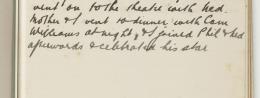 went on to the theatre with Ned.
Mother & I went to dinner with Cam
Williams at night, & I joined Phil & Ned
afterwards & celebrated his star